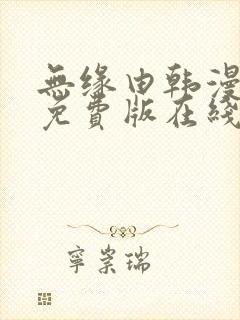 無缘由韩漫
免費版在綫
寧崇瑞